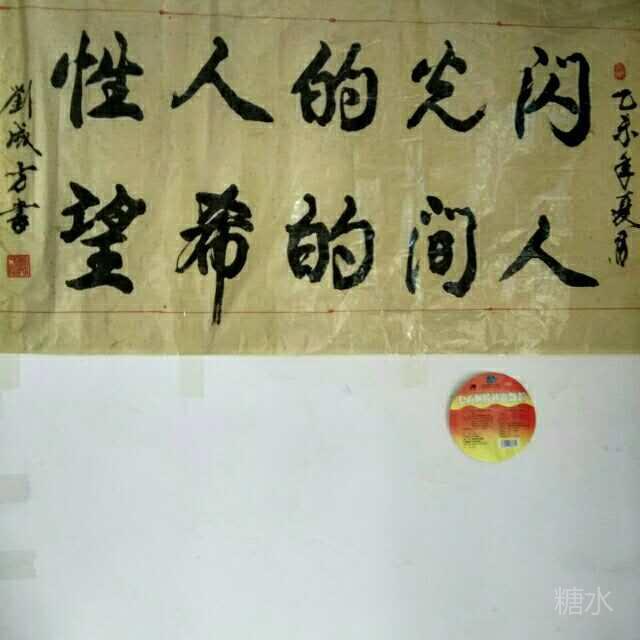 乙未年夏月
闪光的人性
人间的希望
劉成方書
糖水